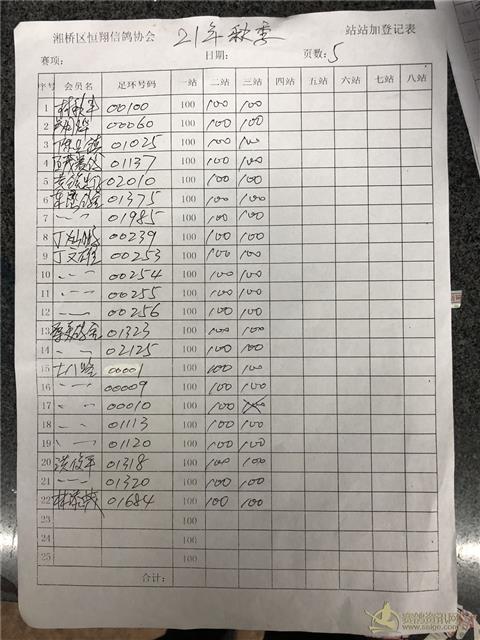 湘桥区恒翔信鸽协会 21年秋季 站站加登记表
赛项: 日期: 页数: 5
序号 会员名 足环号码 一站 二站 三站 四站 五站 六站 七站 八站
1 00100 100 100 100
2 00060 100 100 100
3 01025 100 100 100
4 01137 100 100 100
5 02010 100 100 100
6 01375 100 100 100
7 〃 01985 100 100 100
8 00239 100 100 100
9 丁文雄 00253 100 100 100
10 〃 00254 100 100 100
11 〃 00255 100 100 100
12 〃 00256 100 100 100
13 01323 100 100 100
14 〃 02125 100 100 100
15 00001 100 100 100
16 〃 00009 100 100 100
17 〃 00010 100 100
18 〃 01113 100 100 100
19 〃 01120 100 100 100
20 01318 100 100 100
21 〃 01320 100 100 100
22 01684 100 100 100
23 100
24 100
25 100
合计:
赛鸽资讯网
www.saige.com